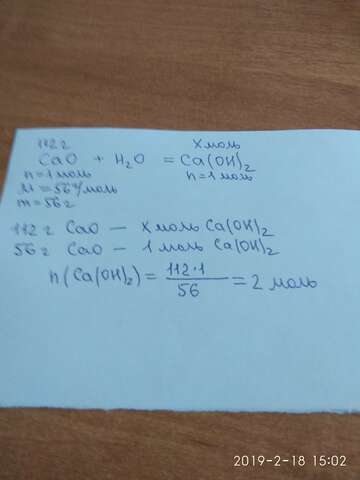 112 г        X моль
CaO + H₂O = Ca(OH)₂
n = 1 моль        n = 1 моль
M = 56 г/моль
m = 56 г
112 г CaO — X моль Ca(OH)₂
56 г CaO — 1 моль Ca(OH)₂
n(Ca(OH)₂) = 112·1 / 56 = 2 моль
2019-2-18 15:02